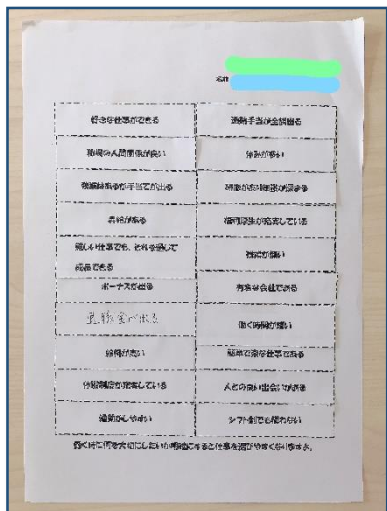 名前
好きな仕事ができる
通勤手当が全額出る
職場の人間関係が良い
休みが多い
残業はあるが手当てが出る
昇給がある
福利厚生が充実している
厳しい仕事でも、それを通して
成長できる
ボーナスが出る
有名な会社である
退職金が出る
働く時間が短い
給料が高い
簡単で楽な仕事である
休暇制度が充実している
人との良い出会いがある
通勤がしやすい
シフト制でも構わない
働く時に何を大切にしたいか明確になると仕事を選びやすくなりますよ。